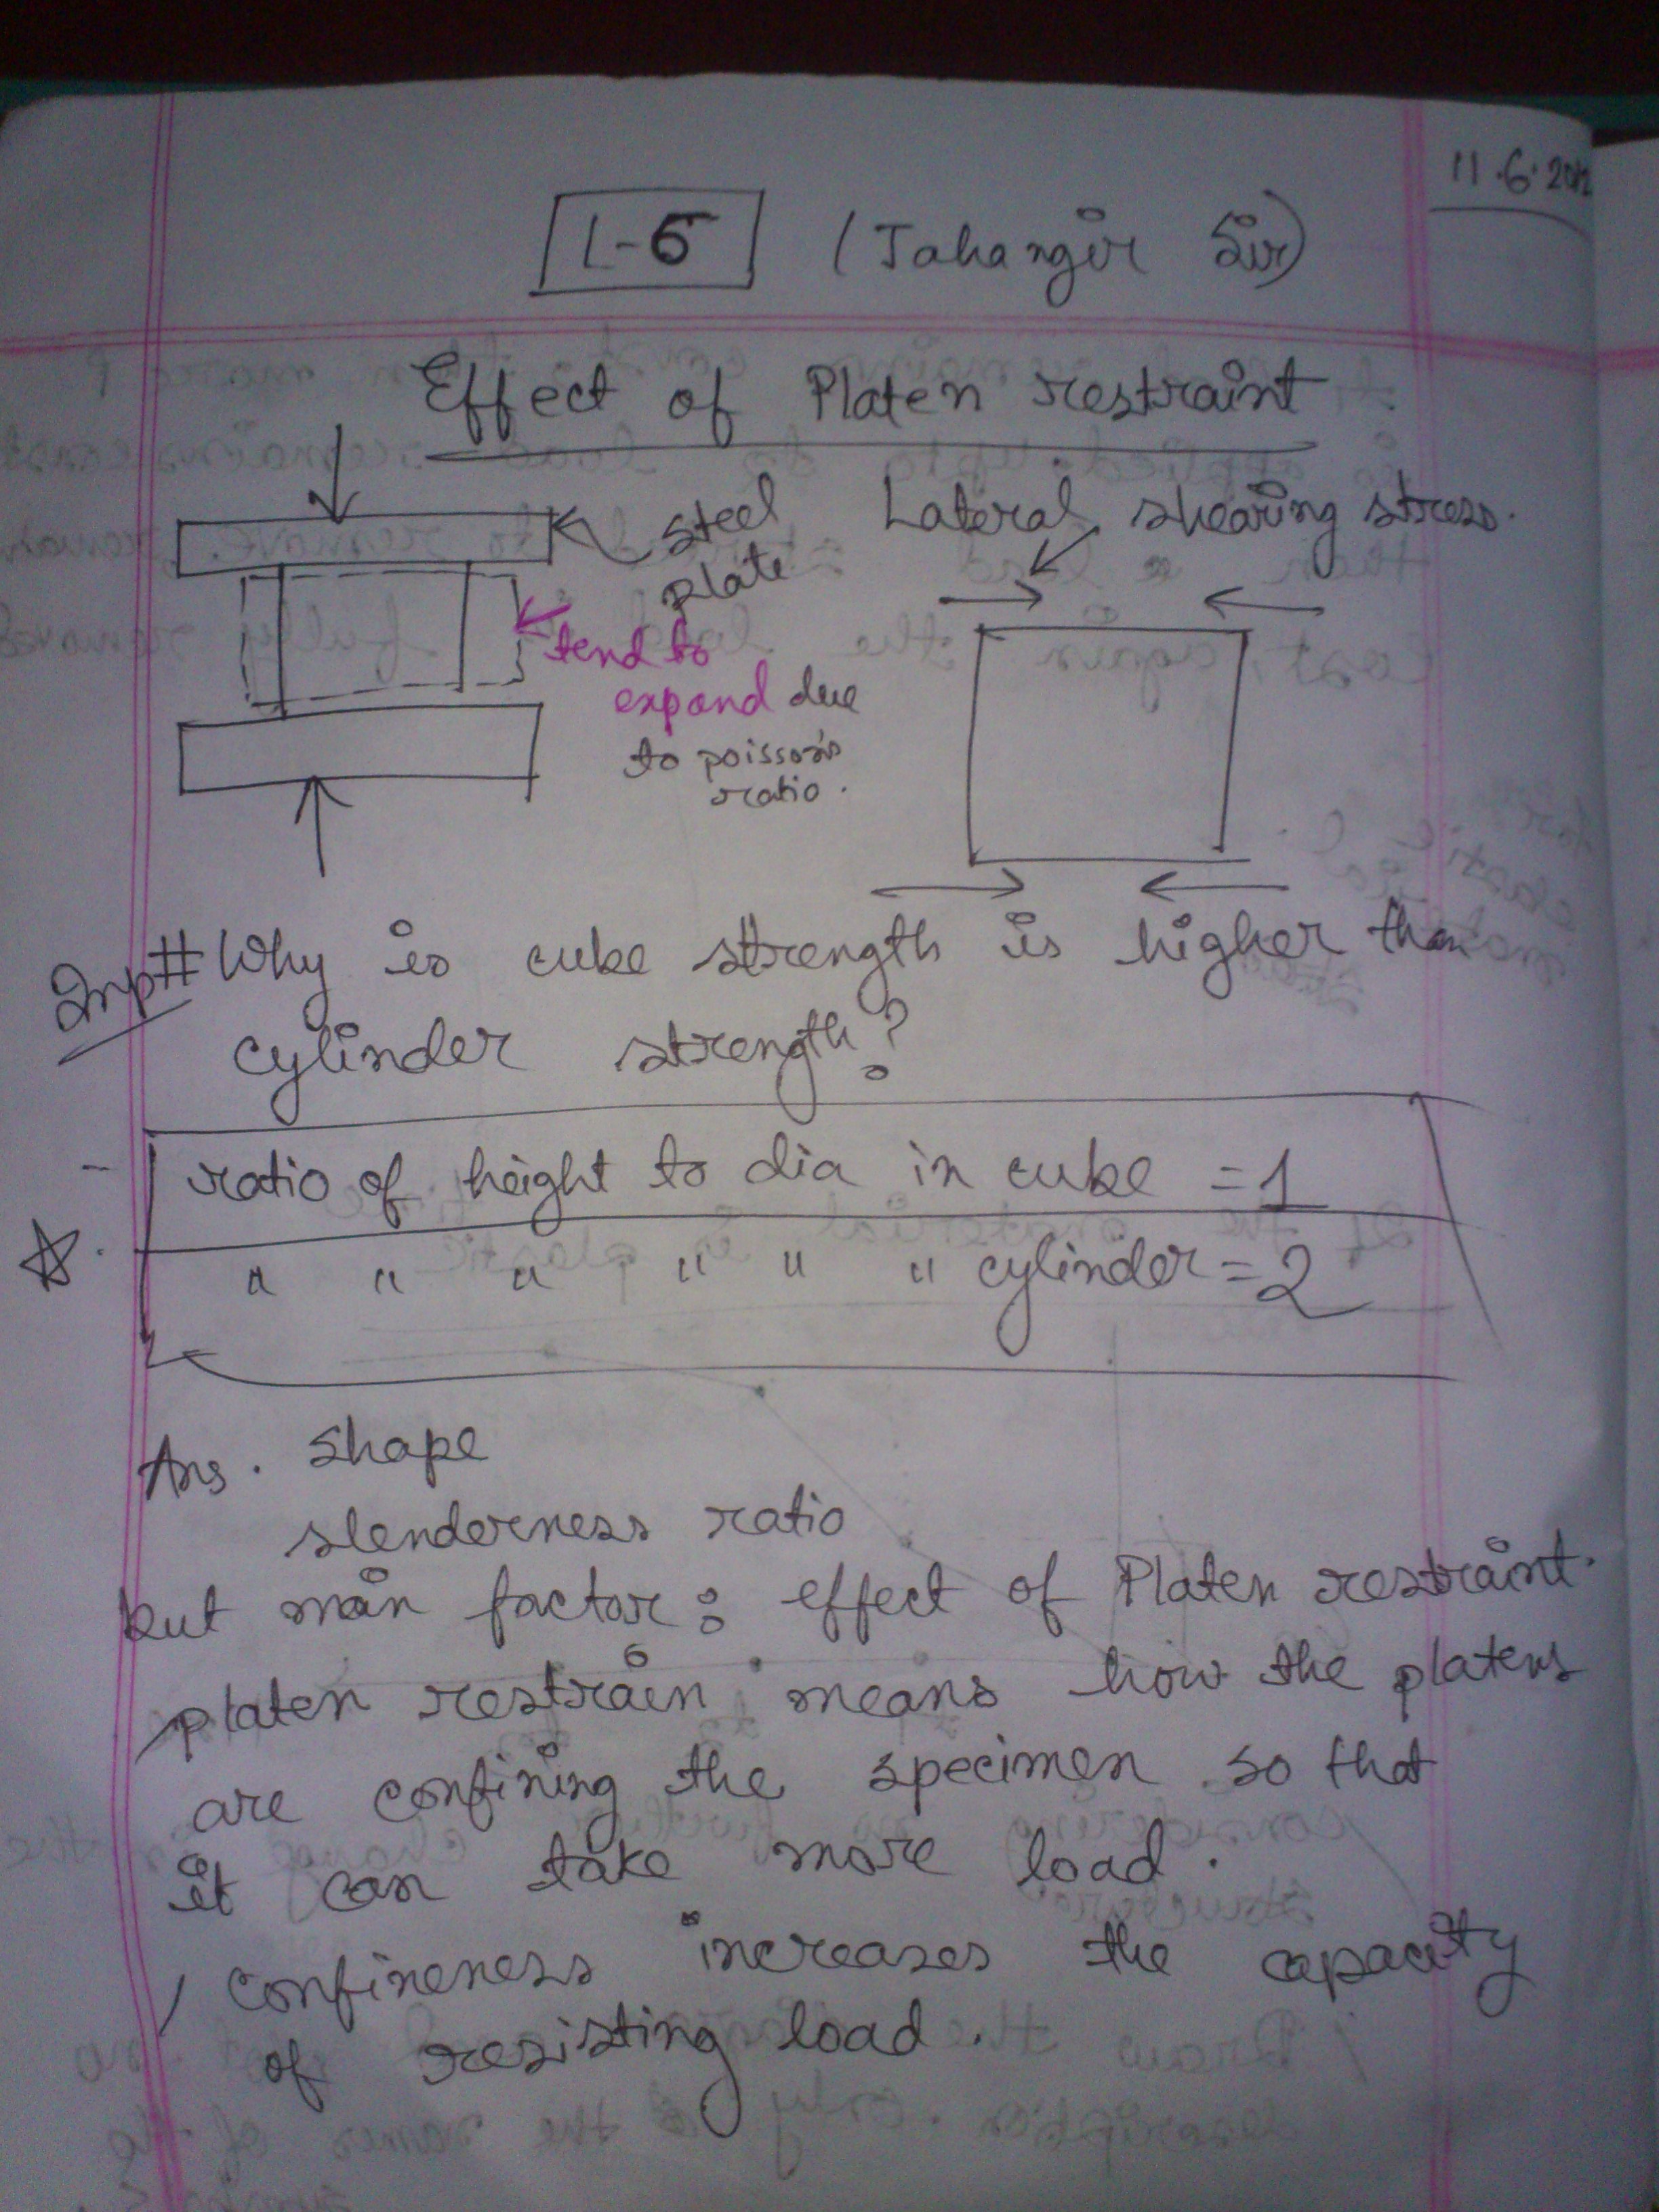 11.6.2012
L-5 (Jahangir Sir)
Effect of Platen restraint
steel plate
Lateral shearing stress.
tend to
expand due
to poisson's
ratio.
Imp # Why is cube strength is higher than
cylinder strength?
- ratio of height to dia in cube = 1
" " " " " " cylinder = 2
Ans. Shape
slenderness ratio
but main factor : effect of Platen restraint.
platen restrain means how the platens
are confining the specimen so that
it can take more load.
/ confineness increases the capacity
of resisting load.